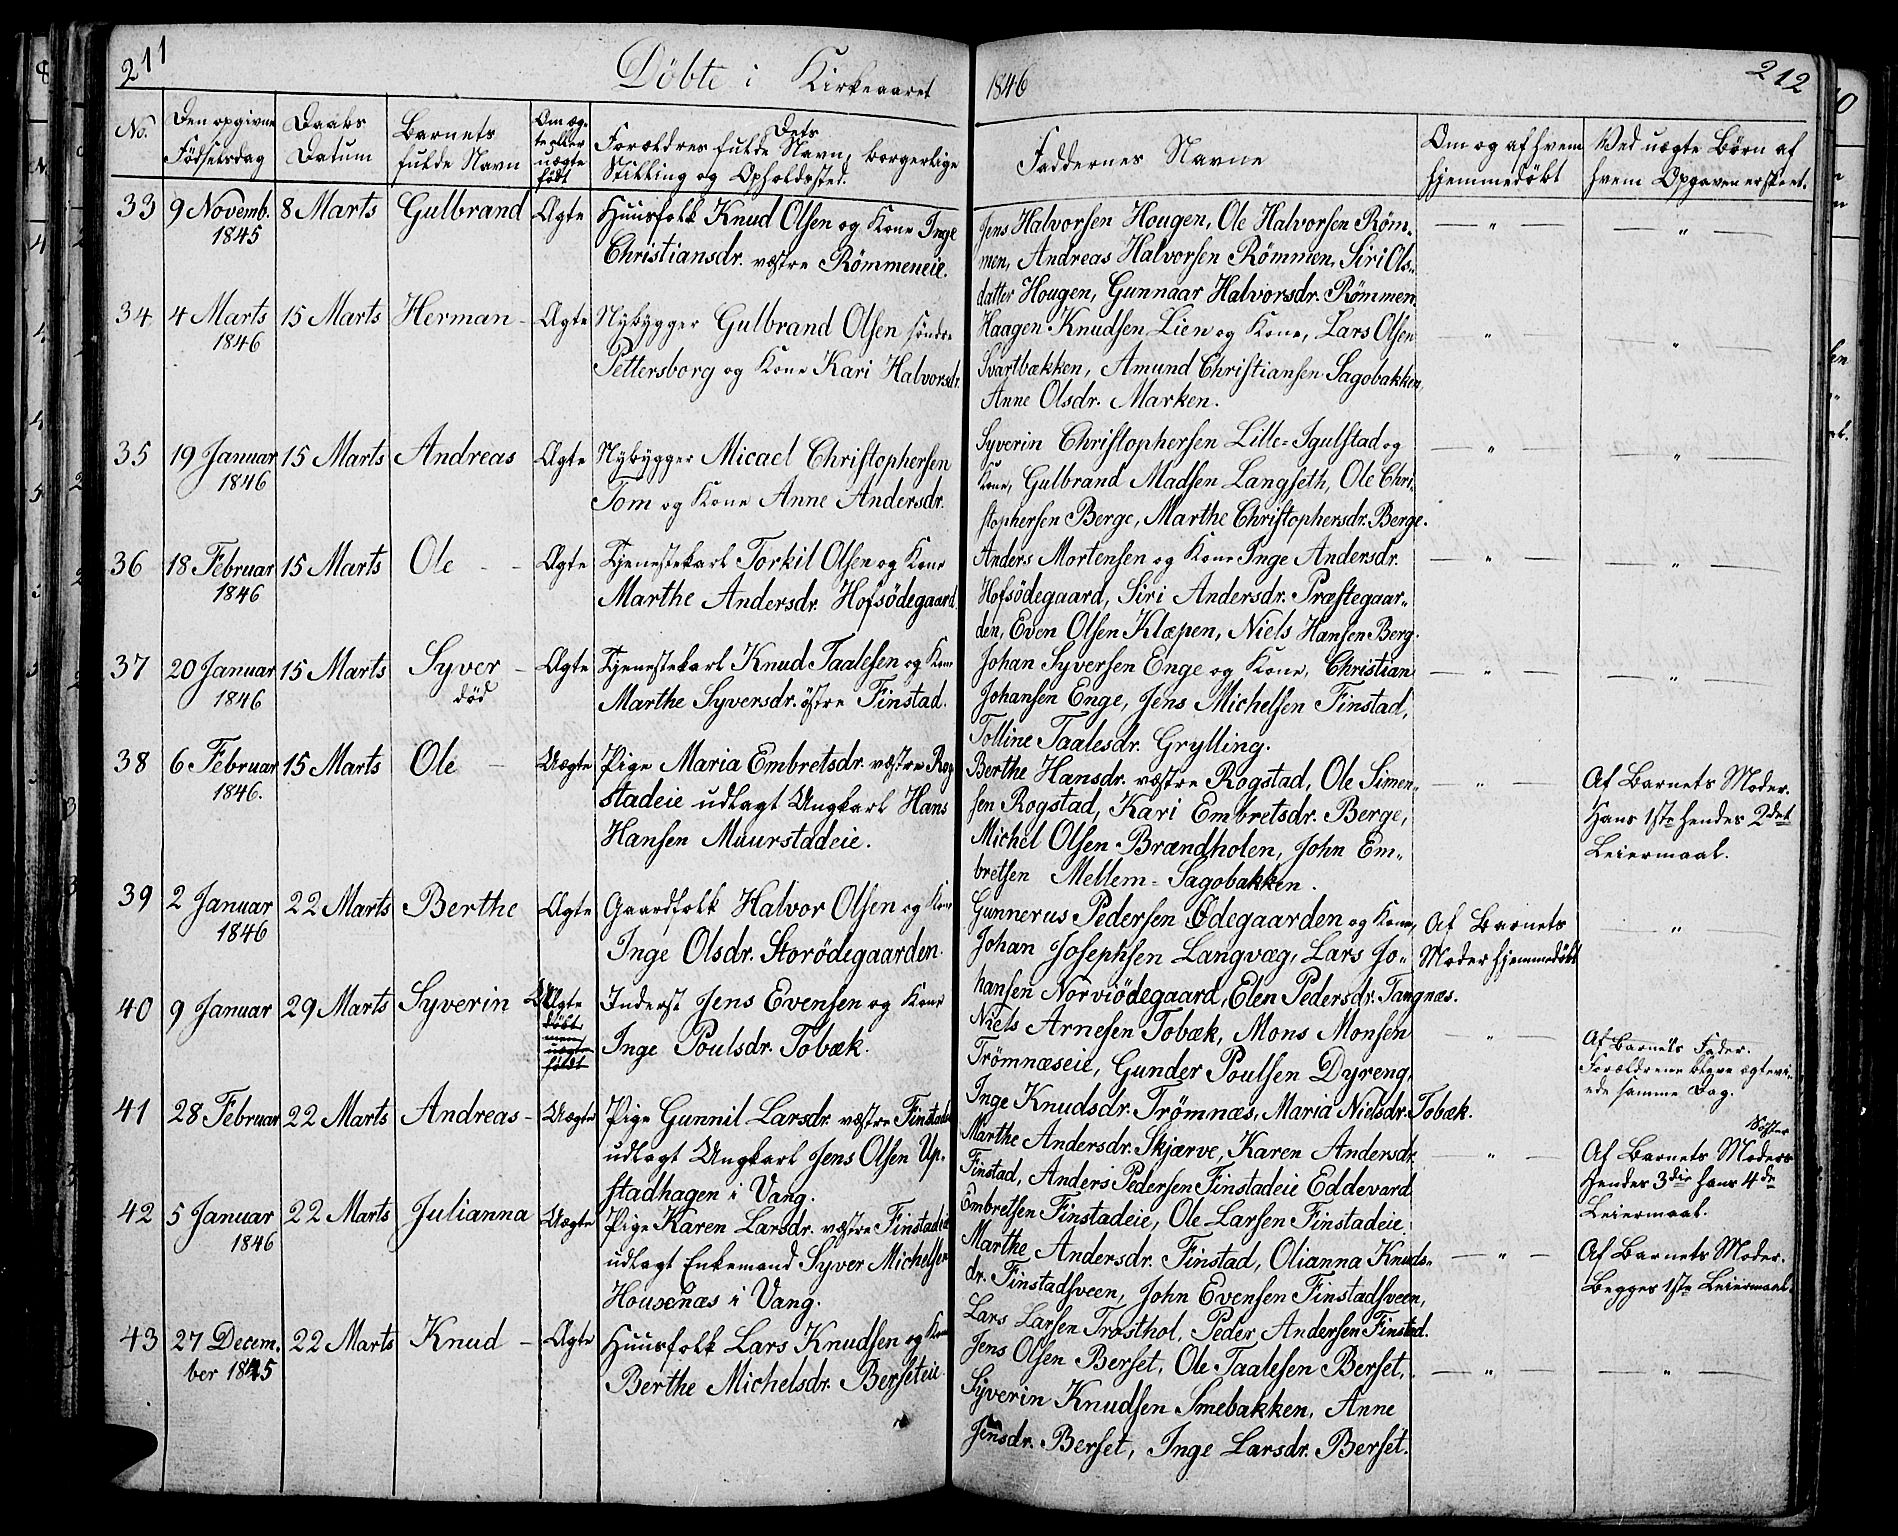 211
Döbte i Kirkeaaret 1846
212
No.
Den opgivne Födselsdag
Daabs Datum
Barnets fulde Navn
Om ægte eller uægte födt
Forældres fulde Navn, Dets borgerlige Stilling og Opholdssted.
Faddernes Navne
Om og af hvem hjemmedöbt
Ved uægte Börn af hvem Opgaven er skeet.
33 9 Novemb. 1845 8 Marts Gulbrand Ægte
Huusfolk Knud Olsen og Kone Inge
Christiansdr. vestre Römmeneie.
Jens Halvorsen Hougen, Ole Halvorsen Röm-
men, Andreas Halvorsen Römmen, Siri Ols-
datter Hougen, Gunnaar Halvorsdr. Römmen.
34 4 Marts 1846 15 Marts Herman Ægte
Nybygger Gulbrand Olsen söndre
Pettersborg og Kone Kari Halvorsdr.
Haagen Knudsen Lien og Kone, Lars Olsen
Svartbakken, Amund Christiansen Sagobakken,
Anne Olsdr. Marken.
35 19 Januar 1846 15 Marts Andreas Ægte
Nybygger Micael Christophersen
Tom og Kone Anne Andersdr.
Syverin Christophersen Lille-Igulstad og
Kone, Gulbrand Madsen Langseth, Ole Chri-
stophersen Berge, Marthe Christophersdr. Berge.
36 18 Februar 1846 15 Marts Ole Ægte
Tjenestekarl Torkil Olsen og Kone
Marthe Andersdr. Hofsödegaard
Anders Mortensen og Kone Inge Andersdr.
Hofsödegaard, Siri Andersdr. Præstegaar-
den, Even Olsen Klæpen, Niels Hansen Berg.
37 20 Januar 1846 15 Marts Syver död Ægte
Tjenestekarl Knud Taalesen og Kone
Marthe Syversdr. östre Finstad.
Johan Syversen Enge og Kone, Christian
Johansen Enge, Jens Michelsen Finstad,
Tolline Taalesdr. Grylling.
38 6 Februar 1846. 15 Marts Ole Uægte
Pige Maria Embretsdr. vestre Rog
stadeie udlagt Ungkarl Hans
Hansen Muurstadeie.
Berthe Hansdr. vestre Rogstad, Ole Simen-
sen Rogstad, Kari Embretsdr. Berge,
Michel Olsen Brændholen, John Em-
bretsen Mellem-Sagobakken.
Af Barnets Moder.
Hans 1ste hendes 2det
Leiermaal.
39 2 Januar 1846 22 Marts Berthe Ægte
Gaardfolk Halvor Olsen og Kone
Inge Olsdr. Storödegaarden.
Gunnerus Pedersen Ödegaarden og Kone,
Johan Josephsen Langvæg, Lars Jo-
hansen Norviödegaard, Elen Pedersdr. Tangnæs.
Af Barnets
Moder hjemmedöbt
40 9 Januar 29 Marts Syverin Uægte
döbt men uægte födt
Inderst Jens Evensen og Kone
Inge Poulsdr. Tobæk.
Niels Arnesen Tobæk, Mons Monsen
Trömnæseie, Gunder Poulsen Dyreng,
Inge Knudsdr. Trömnæs, Maria Nielsdr. Tobæk.
Af Barnets Fader.
Forældrene bleve ægtevi-
ede samme Dag.
41 28 Februar 22 Marts Andreas Uægte
Pige Gunnil Larsdr. vestre Finstad
udlagt Ungkarl Jens Olsen Up-
stadhagen i Vang.
Marthe Andersdr. Skjærve, Karen Andersdr.
Finstad, Anders Pedersen Finstadeie Eddevard
Embretsen Finstadeie, Ole Larsen Finstadeie.
Söster
Af Barnets Moders
Hendes 3die hans 4de
Leiermaal.
42 5 Januar 1846 22 Marts Julianna Uægte
Pige Karen Larsdr. vestre Finstadeie
udlagt Enkemand Syver Michelsen
Housenæs i Vang.
Marthe Andersdr. Finstad, Olianna Knuds-
dr. Finstadsveen, John Evensen Finstadsveen,
Lars Larsen Trosthol, Peder Andersen Finstad.
Af Barnets Moder.
Begges 1ste Leiermaal.
43 27 Decem-
ber 1845 22 Marts Knud Ægte
Huusfolk Lars Knudsen og Kone
Berthe Michelsdr. Berseteie
Jens Olsen Berset, Ole Taalesen Berset,
Syverin Knudsen Smebakken, Anne
Jensdr. Berset, Inge Larsdr. Berset.